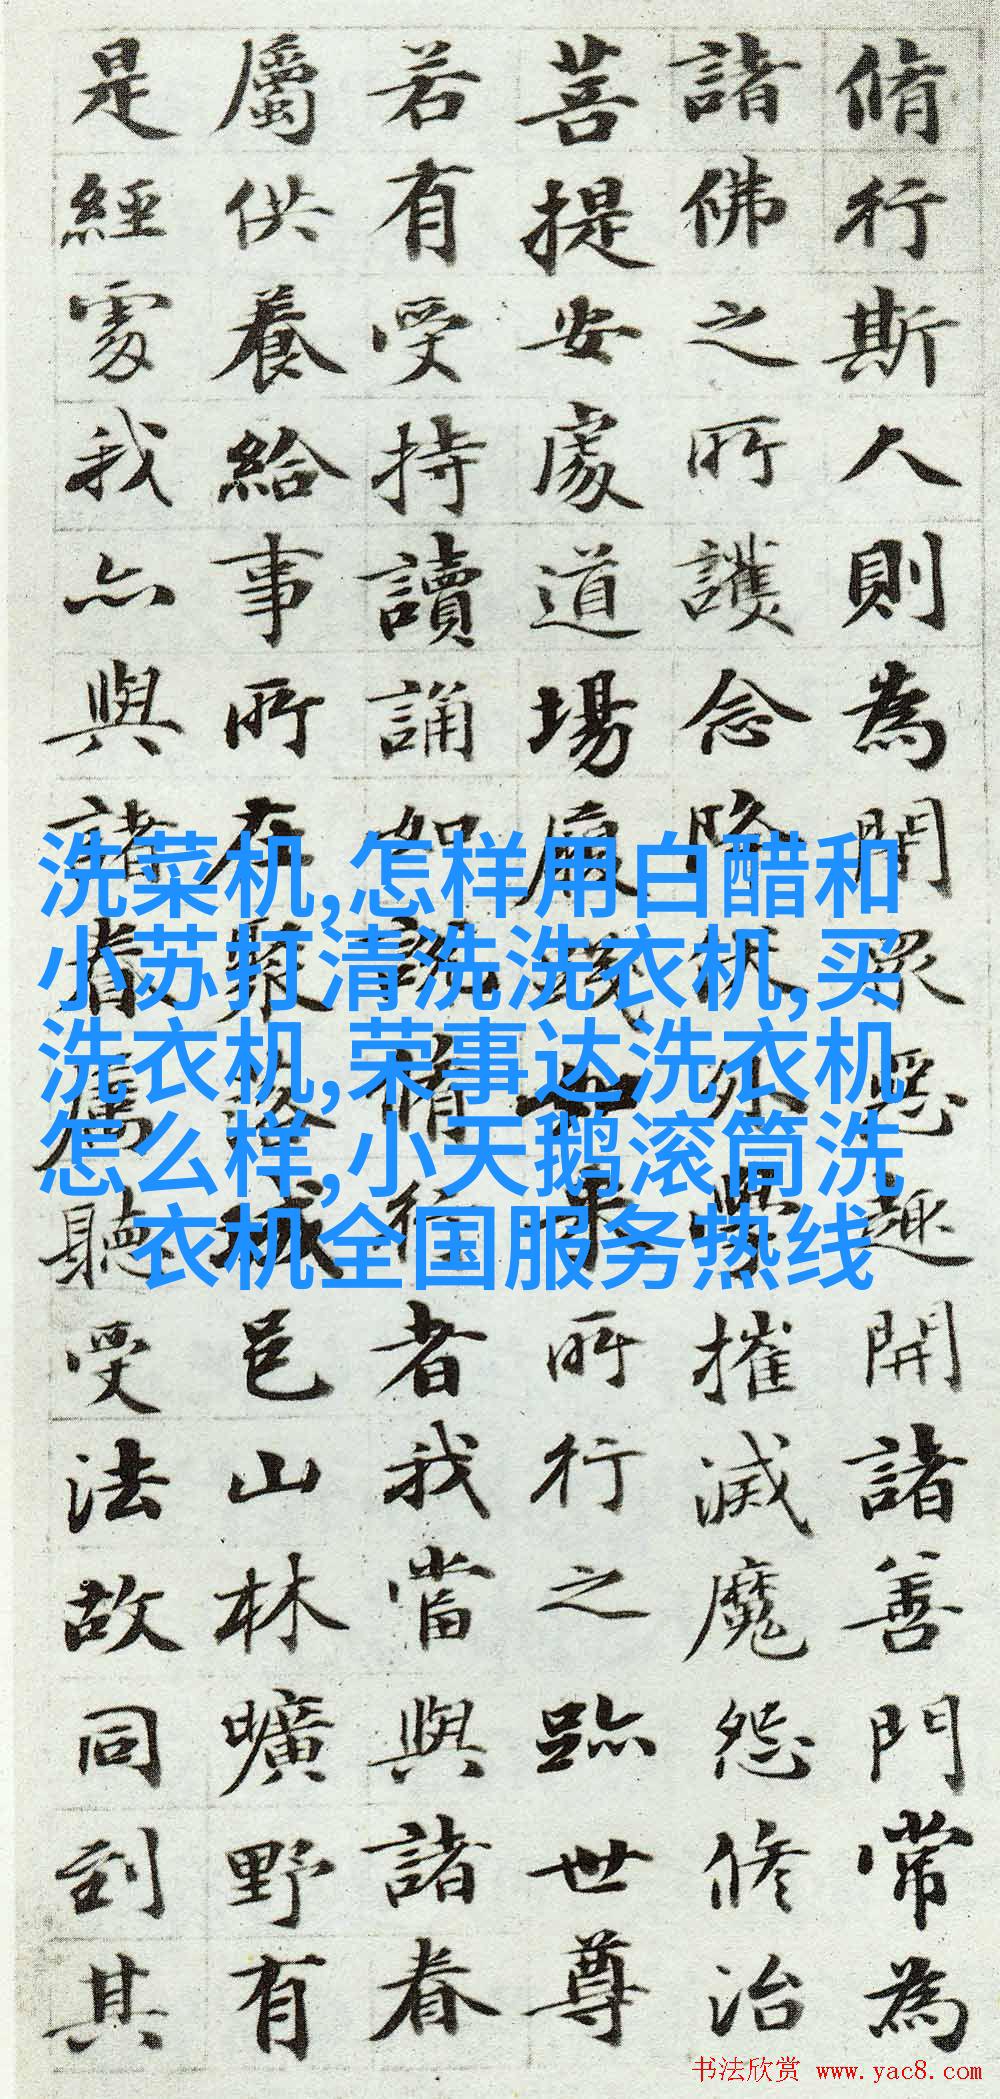 脩行斯人則為閇眾惡趣開諸善門常為
諸佛之所護念降伏外學摧滅魔怨修治
菩提安處道場履踐如来所行之跡世尊
若有受持讀誦如說脩行者我當與諸眷
屬供養給事所在聚落城邑山林曠野有
是經處我亦與諸眷屬聽受法故同到其
洗菜机,怎样用白醋和
小苏打清洗洗衣机,买
洗衣机,荣事达洗衣机
怎么样,小天鹅滚筒洗
衣机全国服务热线
书法欣赏 www.yac8.com